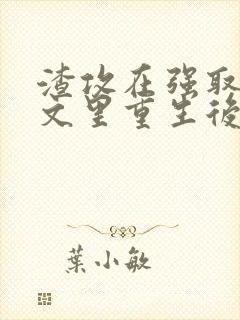 渣攻在强取
文里重生後
葉小敏